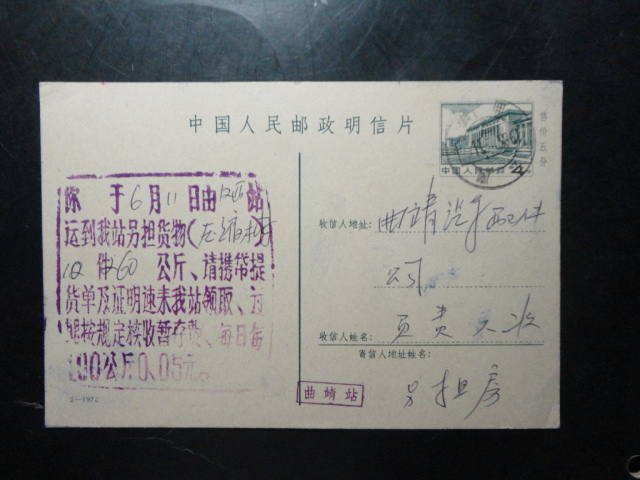 中国人民邮政明信片
售价五分
中国人民邮政 4分
你 于6月11日由 站
运到我站另担货物(
件60 公斤、请携带提
货单及证明速来我站领取、
按规定核收暂存费、每日每
100公斤0.05元。
2—1972
收信人地址: 曲靖汽车配件
公司
收信人姓名: 负责人收
寄信人地址姓名:
曲靖站
另担房